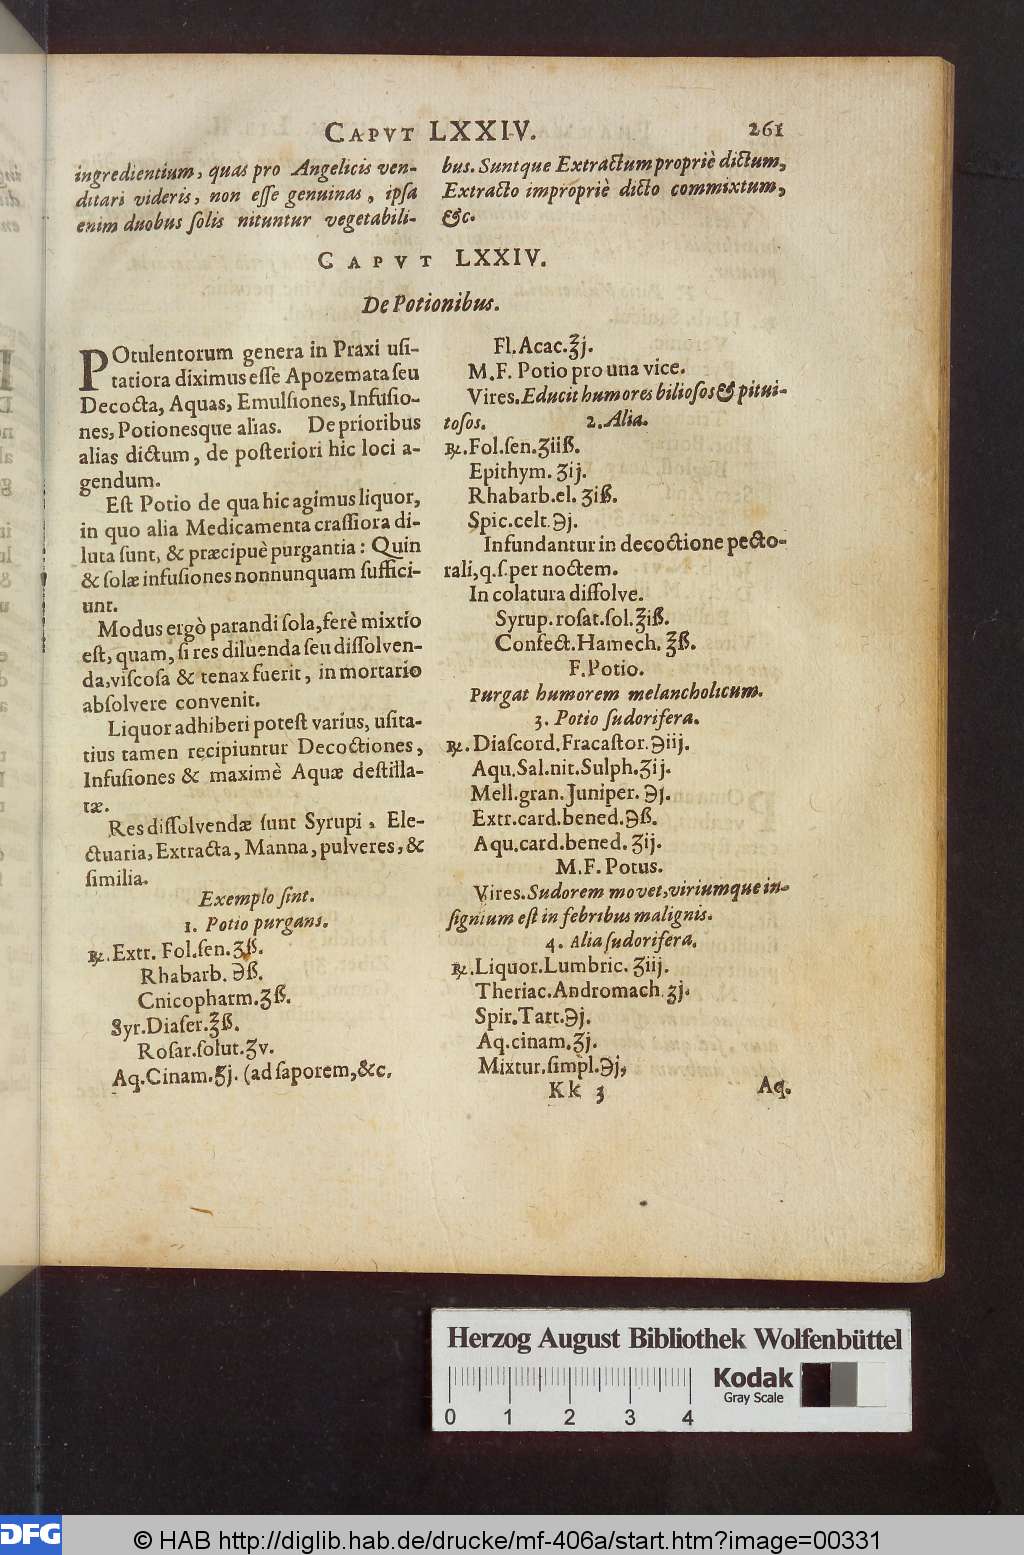 CAPVT LXXIV. 261
ingredientium, quas pro Angelicis ven-
ditari videris, non eſſe genuinas, ipſa
enim duobus ſolis nituntur vegetabili-
bus. Suntque Extractum propriè dictum,
Extracto impropriè dicto commixtum,
&c.
CAPVT LXXIV.
De Potionibus.
POtulentorum genera in Praxi uſi-
tatiora diximus eſſe Apozemata ſeu
Decocta, Aquas, Emulſiones, Infuſio-
nes, Potionesque alias. De prioribus
alias dictum, de poſteriori hic loci a-
gendum.
Eſt Potio de qua hic agimus liquor,
in quo alia Medicamenta craſſiora di-
luta ſunt, & præcipuè purgantia: Quin
& ſolæ infuſiones nonnunquam ſuffici-
unt.
Modus ergò parandi ſola, ferè mixtio
eſt, quam, ſi res diluenda ſeu diſſolven-
da, viſcoſa & tenax fuerit, in mortario
abſolvere convenit.
Liquor adhiberi poteſt varius, uſita-
tius tamen recipiuntur Decoctiones,
Infuſiones & maximè Aquæ deſtilla-
tæ.
Res diſſolvendæ ſunt Syrupi, Ele-
ctuaria, Extracta, Manna, pulveres, &
ſimilia.
Exemplo ſint.
1. Potio purgans.
℞. Extr. Fol. ſen. ʒß.
Rhabarb. ℈ß.
Cnicopharm. ʒß.
Syr. Diaſer. ℥ß.
Roſar. ſolut. ʒv.
Aq. Cinam. ʒj. (ad ſaporem, &c.
Fl. Acac. ℥j.
M. F. Potio pro una vice.
Vires. Educit humores bilioſos & pitui-
toſos. 2. Alia.
℞. Fol. ſen. ʒiiß.
Epithym. ʒij.
Rhabarb. el. ʒiß.
Spic. celt. ℈j.
Infundantur in decoctione pecto-
rali, q. ſ. per noctem.
In colatura diſſolve.
Syrup. roſat. ſol. ℥iß.
Confect. Hamech. ℥ß.
F. Potio.
Purgat humorem melancholicum.
3. Potio ſudorifera.
℞. Diaſcord. Fracaſtor. ℈iij.
Aqu. Sal. nit. Sulph. ʒij.
Mell. gran. Juniper. ℈j.
Extr. card. bened. ℈ß.
Aqu. card. bened. ʒij.
M. F. Potus.
Vires. Sudorem movet, viriumque in-
ſignium eſt in febribus malignis.
4. Alia ſudorifera.
℞. Liquor. Lumbric. ʒiij.
Theriac. Andromach. ʒj.
Spir. Tart. ℈j.
Aq. cinam. ʒj.
Mixtur. ſimpl. ℈j,
Kk 3 Aq.
Herzog August Bibliothek Wolfenbüttel
Kodak
Gray Scale
0 1 2 3 4
DFG
© HAB http://diglib.hab.de/drucke/mf-406a/start.htm?image=00331